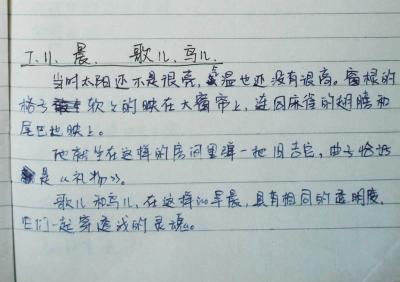 7.11. 晨. 歌儿. 鸟儿.
当时太阳还不是很亮, 气温也还没有很高。窗棂的
格子软软的映在大窗帘上, 连同麻雀的翅膀和
尾巴也映上。
他就坐在这样的房间里弹一把旧吉它, 曲子恰好
是《礼物》。
歌儿和鸟儿, 在这样的早晨, 具有相同的透明度,
它们一起穿透我的灵魂。